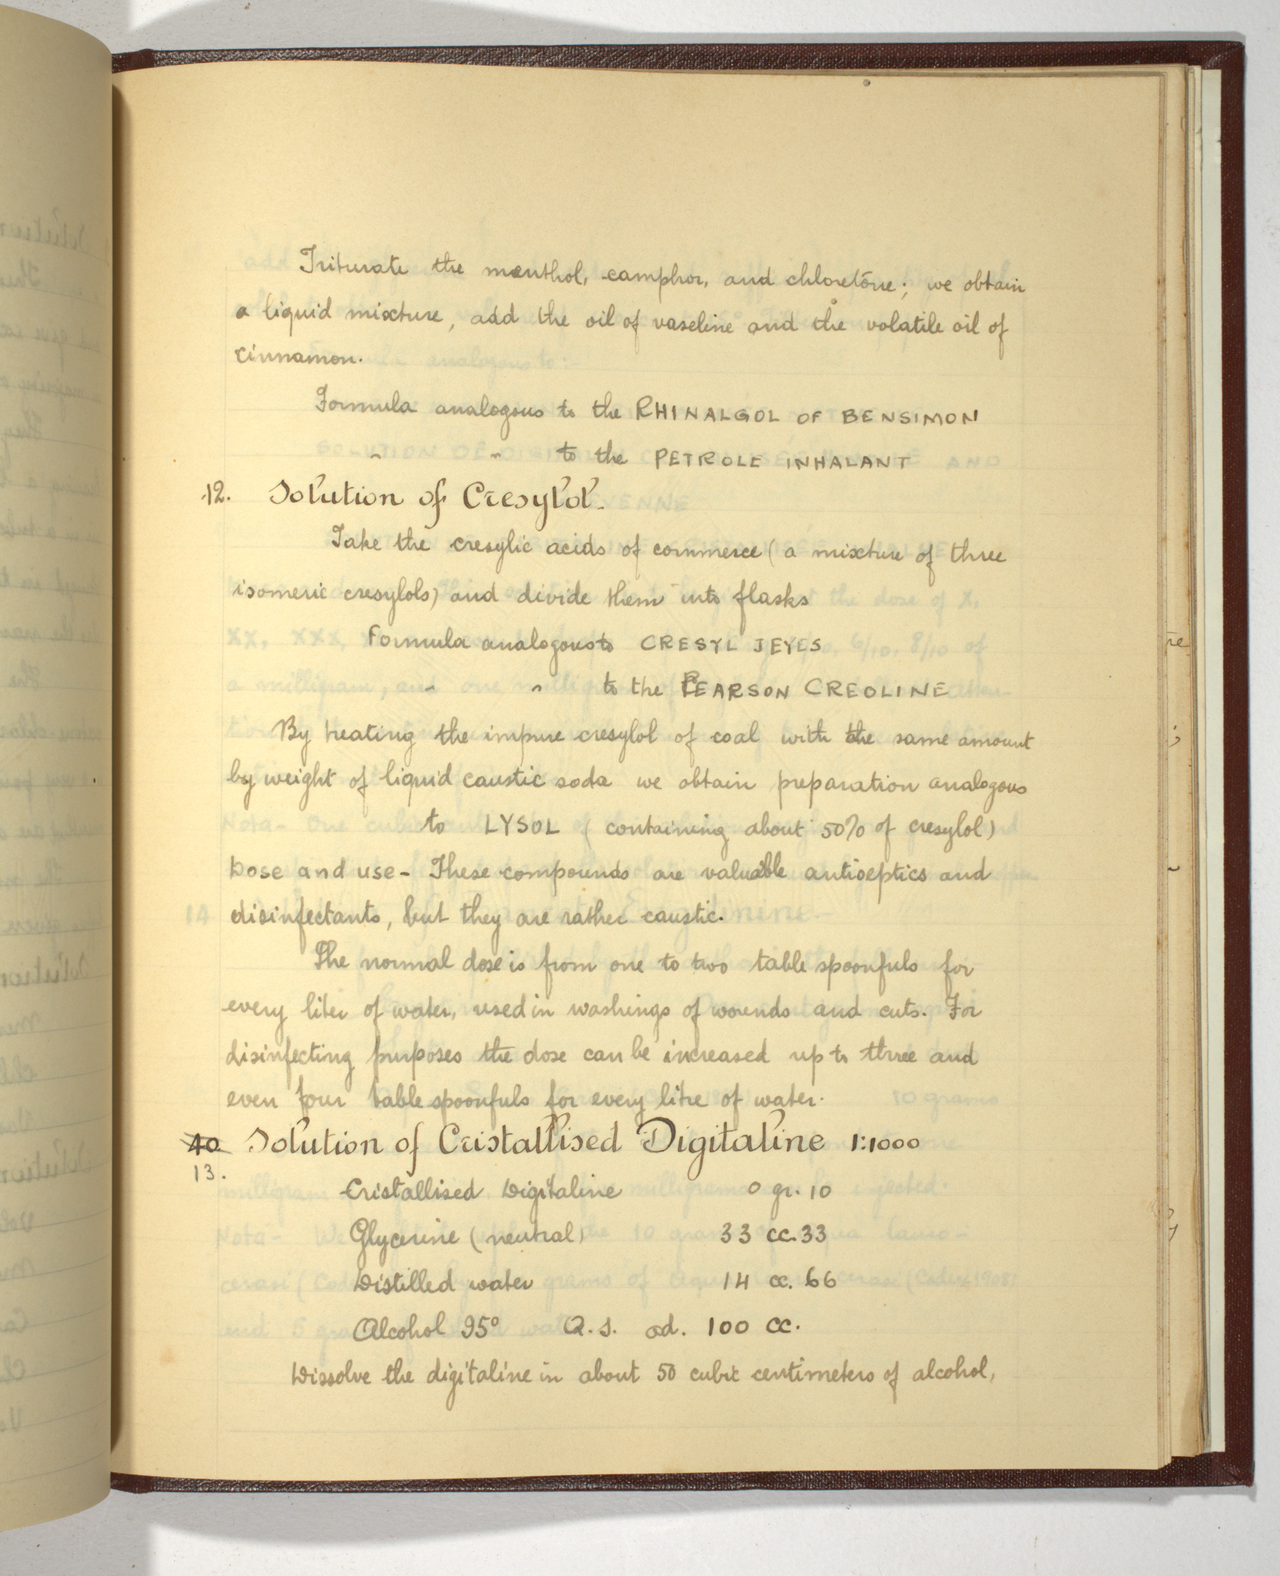 Triturate the menthol, camphor, and chloretone; we obtain
a liquid mixture, add the oil of vaseline and the volatile oil of
cinnamon.
Formula analogous to the RHINALGOL OF BENSIMON
" " to the PETROLE INHALANT
12. Solution of Cresylol.
Take the cresylic acids of commerce (a mixture of three
isomeric cresylols) and divide them into flasks
Formula analogous to CRESYL JEYES
" " to the PEARSON CREOLINE
By heating the impure cresylol of coal with the same amount
by weight of liquid caustic soda we obtain preparation analogous
to LYSOL (containing about 50% of cresylol)
Dose and use - These compounds are valuable antiseptics and
disinfectants, but they are rather caustic.
The normal dose is from one to two table spoonfuls for
every liter of water, used in washings of wounds and cuts. For
disinfecting purposes the dose can be increased up to three and
even four table spoonfuls for every litre of water.
40 Solution of Cristallised Digitaline 1:1000
13.
Cristallised Digitaline 0 gr. 10
Glycerine (neutral) 33 cc. 33
Distilled water 14 cc. 66
Alcohol 95° Q.S. ad. 100 cc.
Dissolve the digitaline in about 50 cubic centimeters of alcohol,